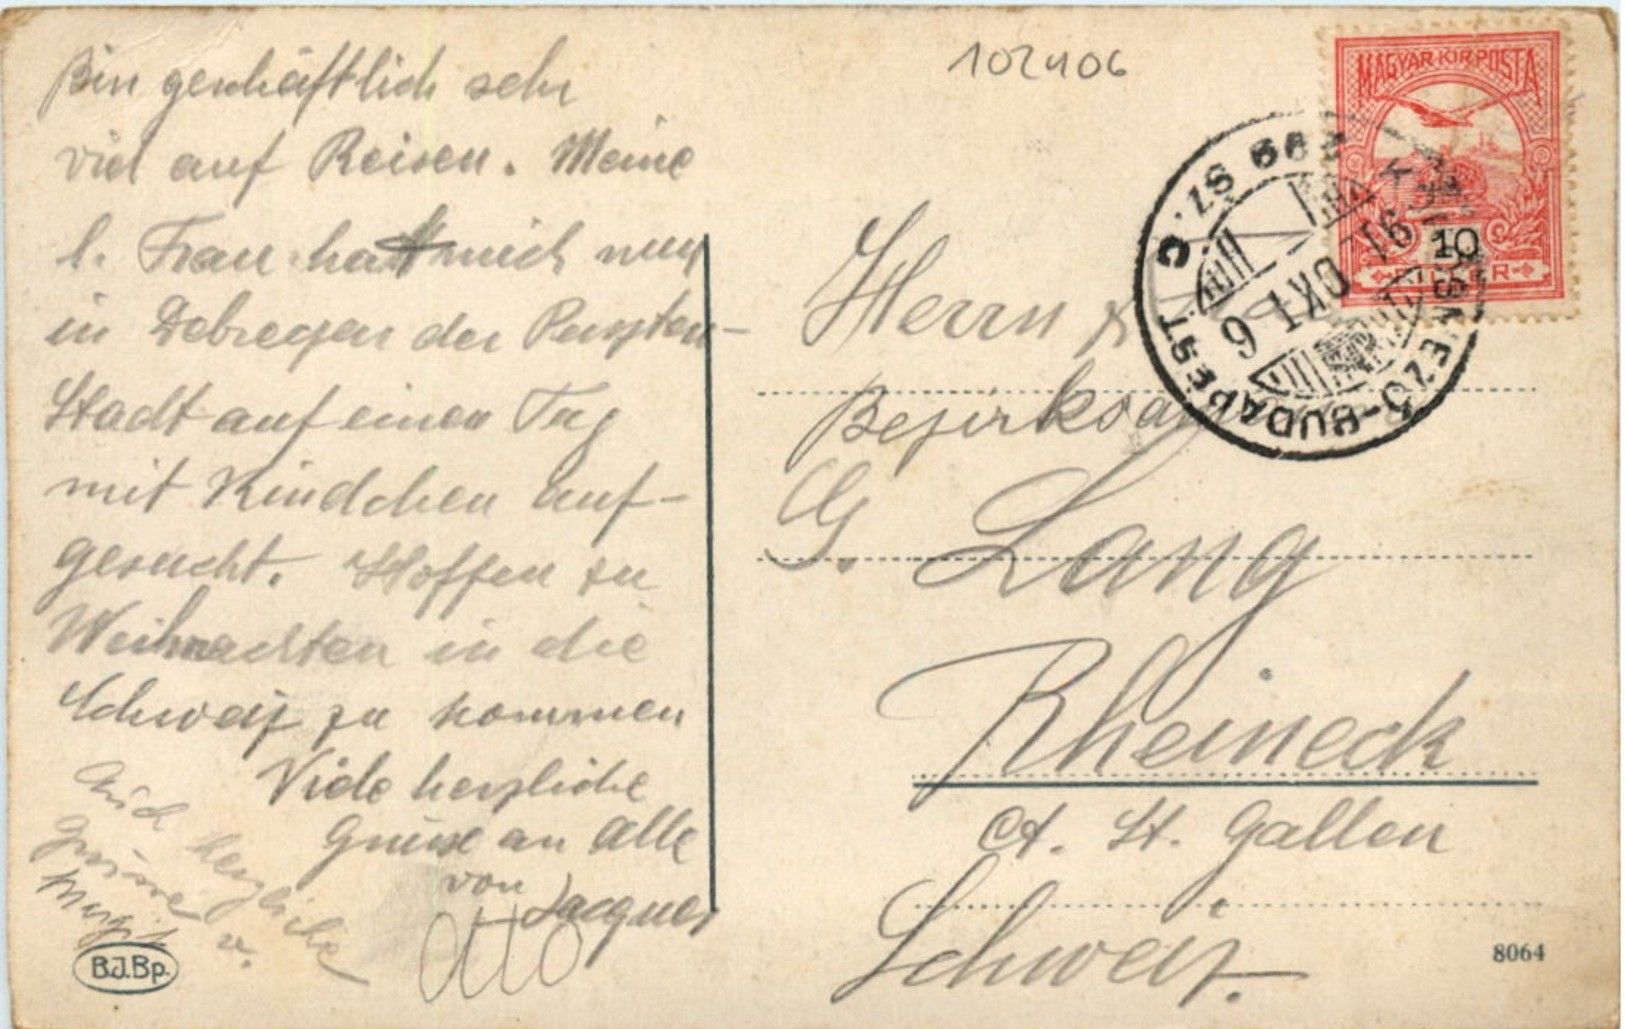 Bin geschäftlich sehr
viel auf Reisen. Meine
l. Frau hat mich nun
in Debreczen der Puszten-
Stadt auf einen Tag
mit Kindchen auf-
gesucht. Hoffen zu
Weihnachten in die
Schweiz zu kommen
Viele herzliche
Grüsse an Alle
von Jacques
Auch herzliche
Grüsse v.
Margit
B.J.Bp.
102406
MAGYAR·KIR·POSTA
10
KECSKEMÉT-BUDAPEST
916 OKT 6
Herrn
G. Lang
Rheineck
Ct. St. Gallen
Schweiz.
8064